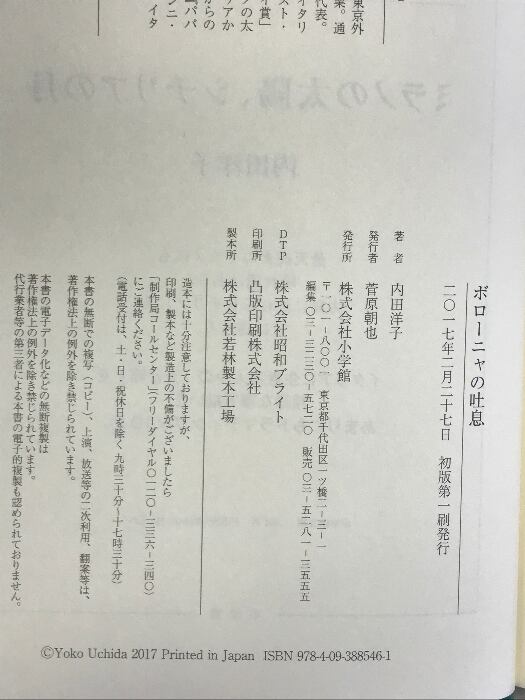 ボローニャの吐息
二〇一七年二月二十七日　初版第一刷発行
著　者　内田洋子
発行者　菅原朝也
発行所　株式会社小学館
〒一〇一-八〇〇一　東京都千代田区一ツ橋二-三-一
編集　〇三-三二三〇-五七二〇　販売　〇三-五二八一-三五五五
DTP　株式会社昭和ブライト
印刷所　凸版印刷株式会社
製本所　株式会社若林製本工場
造本には十分注意しておりますが、
印刷、製本など製造上の不備がございましたら
「制作局コールセンター」（フリーダイヤル〇一二〇-三三六-三四〇）
にご連絡ください。
（電話受付は、土・日・祝休日を除く　九時三十分〜十七時三十分）
本書の無断での複写（コピー）、上演、放送等の二次利用、翻案等は、
著作権法上の例外を除き禁じられています。
本書の電子データ化などの無断複製は
著作権法上の例外を除き禁じられています。
代行業者等の第三者による本書の電子的複製も認められておりません。
東京外
業。通
代表。
イタリ
スト・
イ賞」
ノの太
リアか
からの
『パパ
ンニ・
イタ
©Yoko Uchida 2017 Printed in Japan ISBN 978-4-09-388546-1